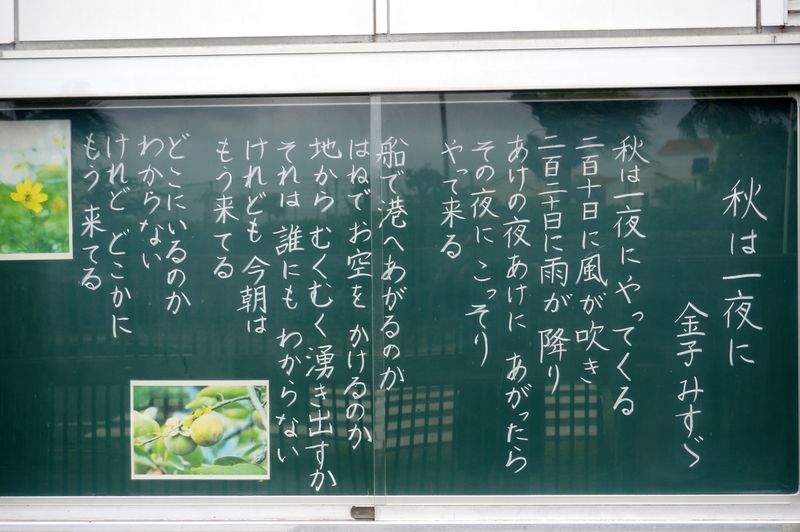 秋は一夜に
金子みすゞ
秋は一夜にやってくる
二百十日に風が吹き
二百二十日に雨が降り
あけの夜あけに あがったら
その夜に こっそり
やって来る
船で港へあがるのか
はねでお空を かけるのか
地から むくむく湧き出すか
それは 誰にも わからない
けれども 今朝は
もう来てる
どこにいるのか
わからない
けれど どこかに
もう来てる